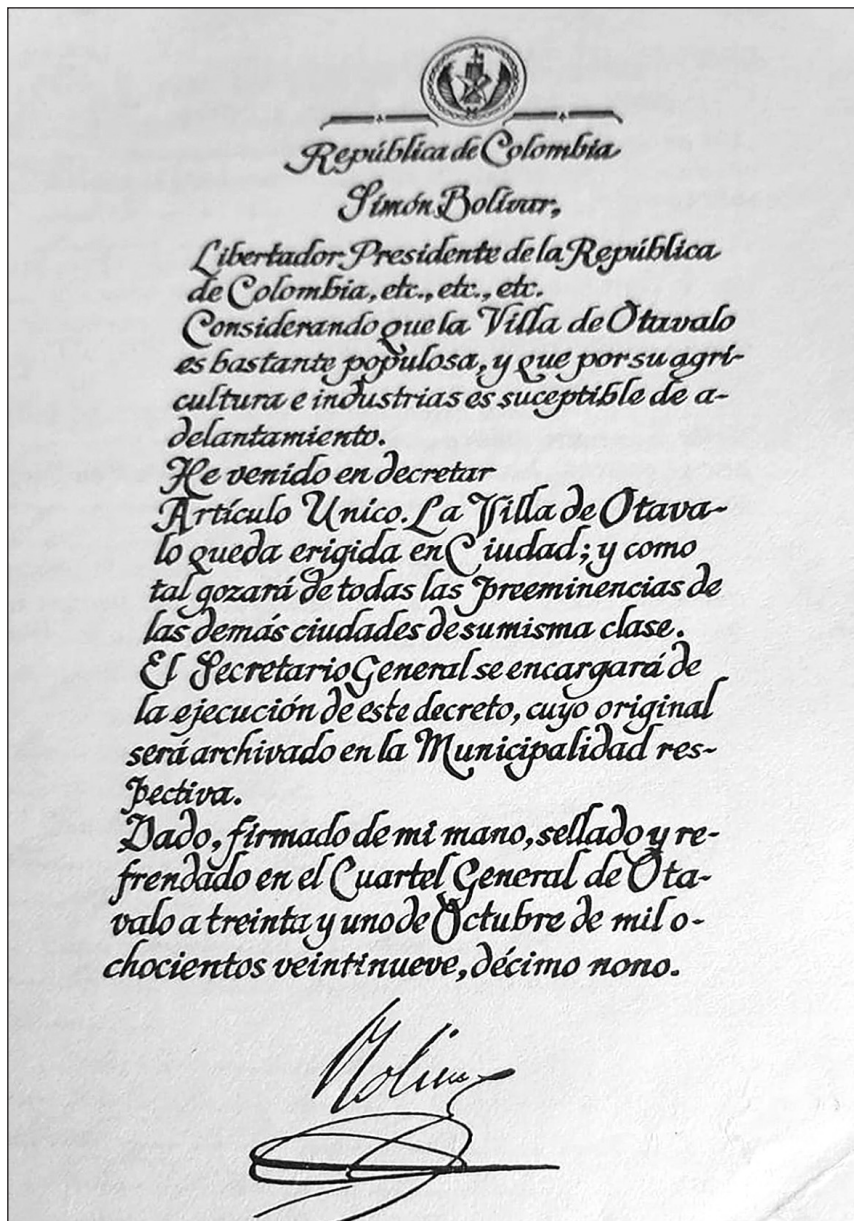 República de Colombia
Simón Bolívar,
Libertador Presidente de la República
de Colombia, etc., etc., etc.
Considerando que la Villa de Otavalo
es bastante populosa, y que por su agri-
cultura e industrias es suceptible de a-
delantamiento.
He venido en decretar
Artículo Unico. La Villa de Otava-
lo queda erigida en Ciudad; y como
tal gozará de todas las preeminencias de
las demás ciudades de su misma clase.
El Secretario General se encargará de
la ejecución de este decreto, cuyo original
será archivado en la Municipalidad res-
pectiva.
Dado, firmado de mi mano, sellado y re-
frendado en el Cuartel General de Ota-
valo a treinta y uno de Octubre de mil o-
chocientos veintinueve, décimo nono.
Bolívar